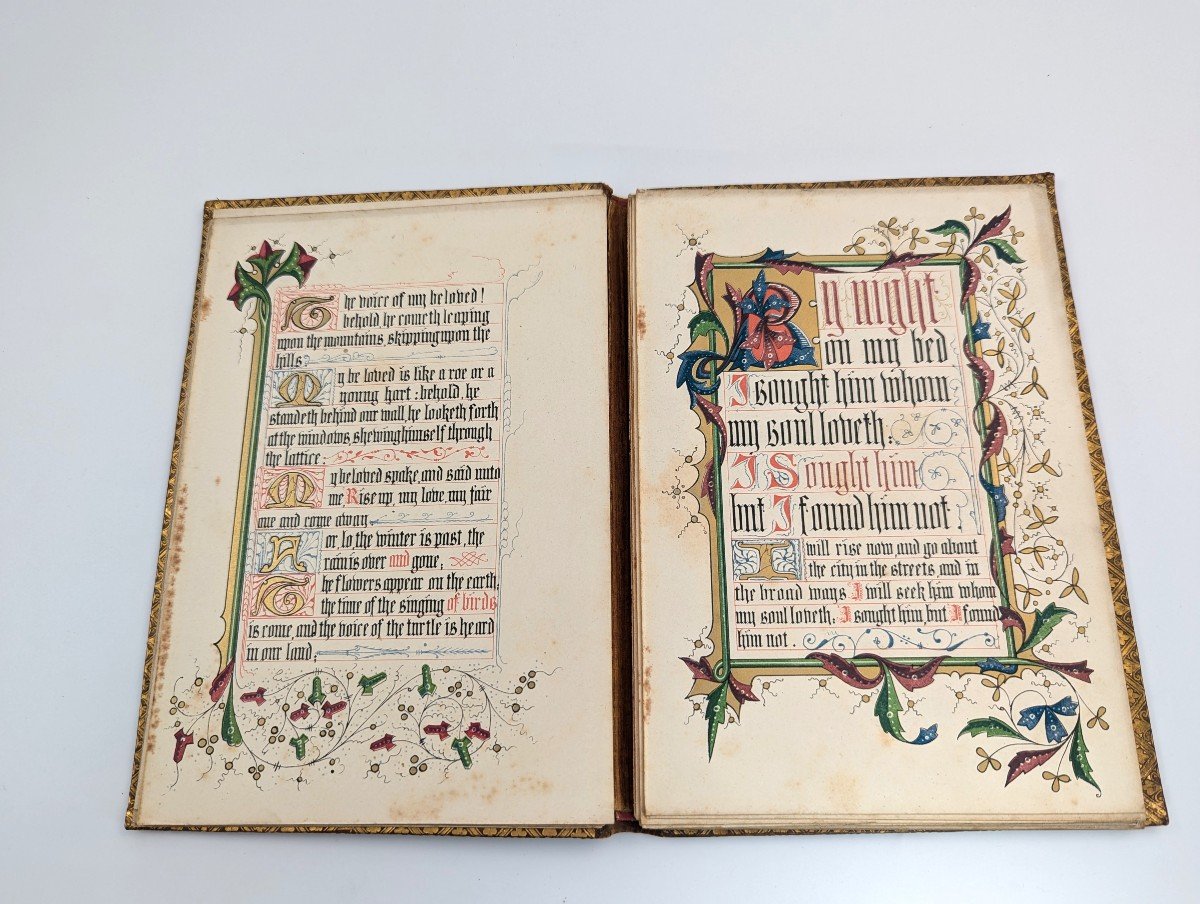 The voice of my beloved!
behold he cometh leaping
upon the mountains, skipping upon the
hills.
My beloved is like a roe or a
young hart: behold, he
standeth behind our wall, he looketh forth
at the windows, shewing himself through
the lattice.
My beloved spake, and said unto
me Rise up, my love, my fair
one and come away
For lo, the winter is past, the
rain is over and gone,
The flowers appear on the earth,
the time of the singing of birds
is come, and the voice of the turtle is heard
in our land;
By night
on my bed
I sought him whom
my soul loveth.
I Sought him
but I found him not.
I will rise now, and go about
the city in the streets, and in
the broad ways I will seek him whom
my soul loveth. I sought him, but I found
him not.